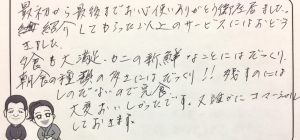 最初から最後までお心使いありがとう御座居ました。
紹介してもらった以上のサービスにはおどろ
きました。
夕食も大満足、カニの新鮮なことにはびっくり、
朝食の種類の多さにはびっくり!! 残すのには
しのびないので完食
大変おいしかったです。又誰かにコマーシャル
しておきます。